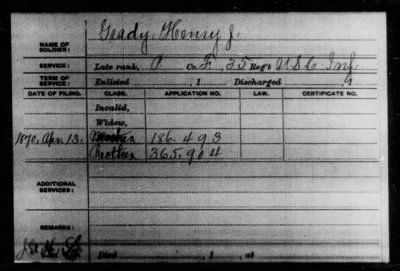 NAME OF SOLDIER: Grady, Henry J.
SERVICE: Late rank, P Co. F, 35 Reg't U.S.C. Inf.
TERM OF SERVICE: Enlisted , 1 Discharged , 1
DATE OF FILING. CLASS. APPLICATION NO. LAW. CERTIFICATE NO.
Invalid,
Widow,
1870, Apr. 13. 186.493
Brother 365.904
ADDITIONAL SERVICES:
REMARKS:
Died , 1 , at